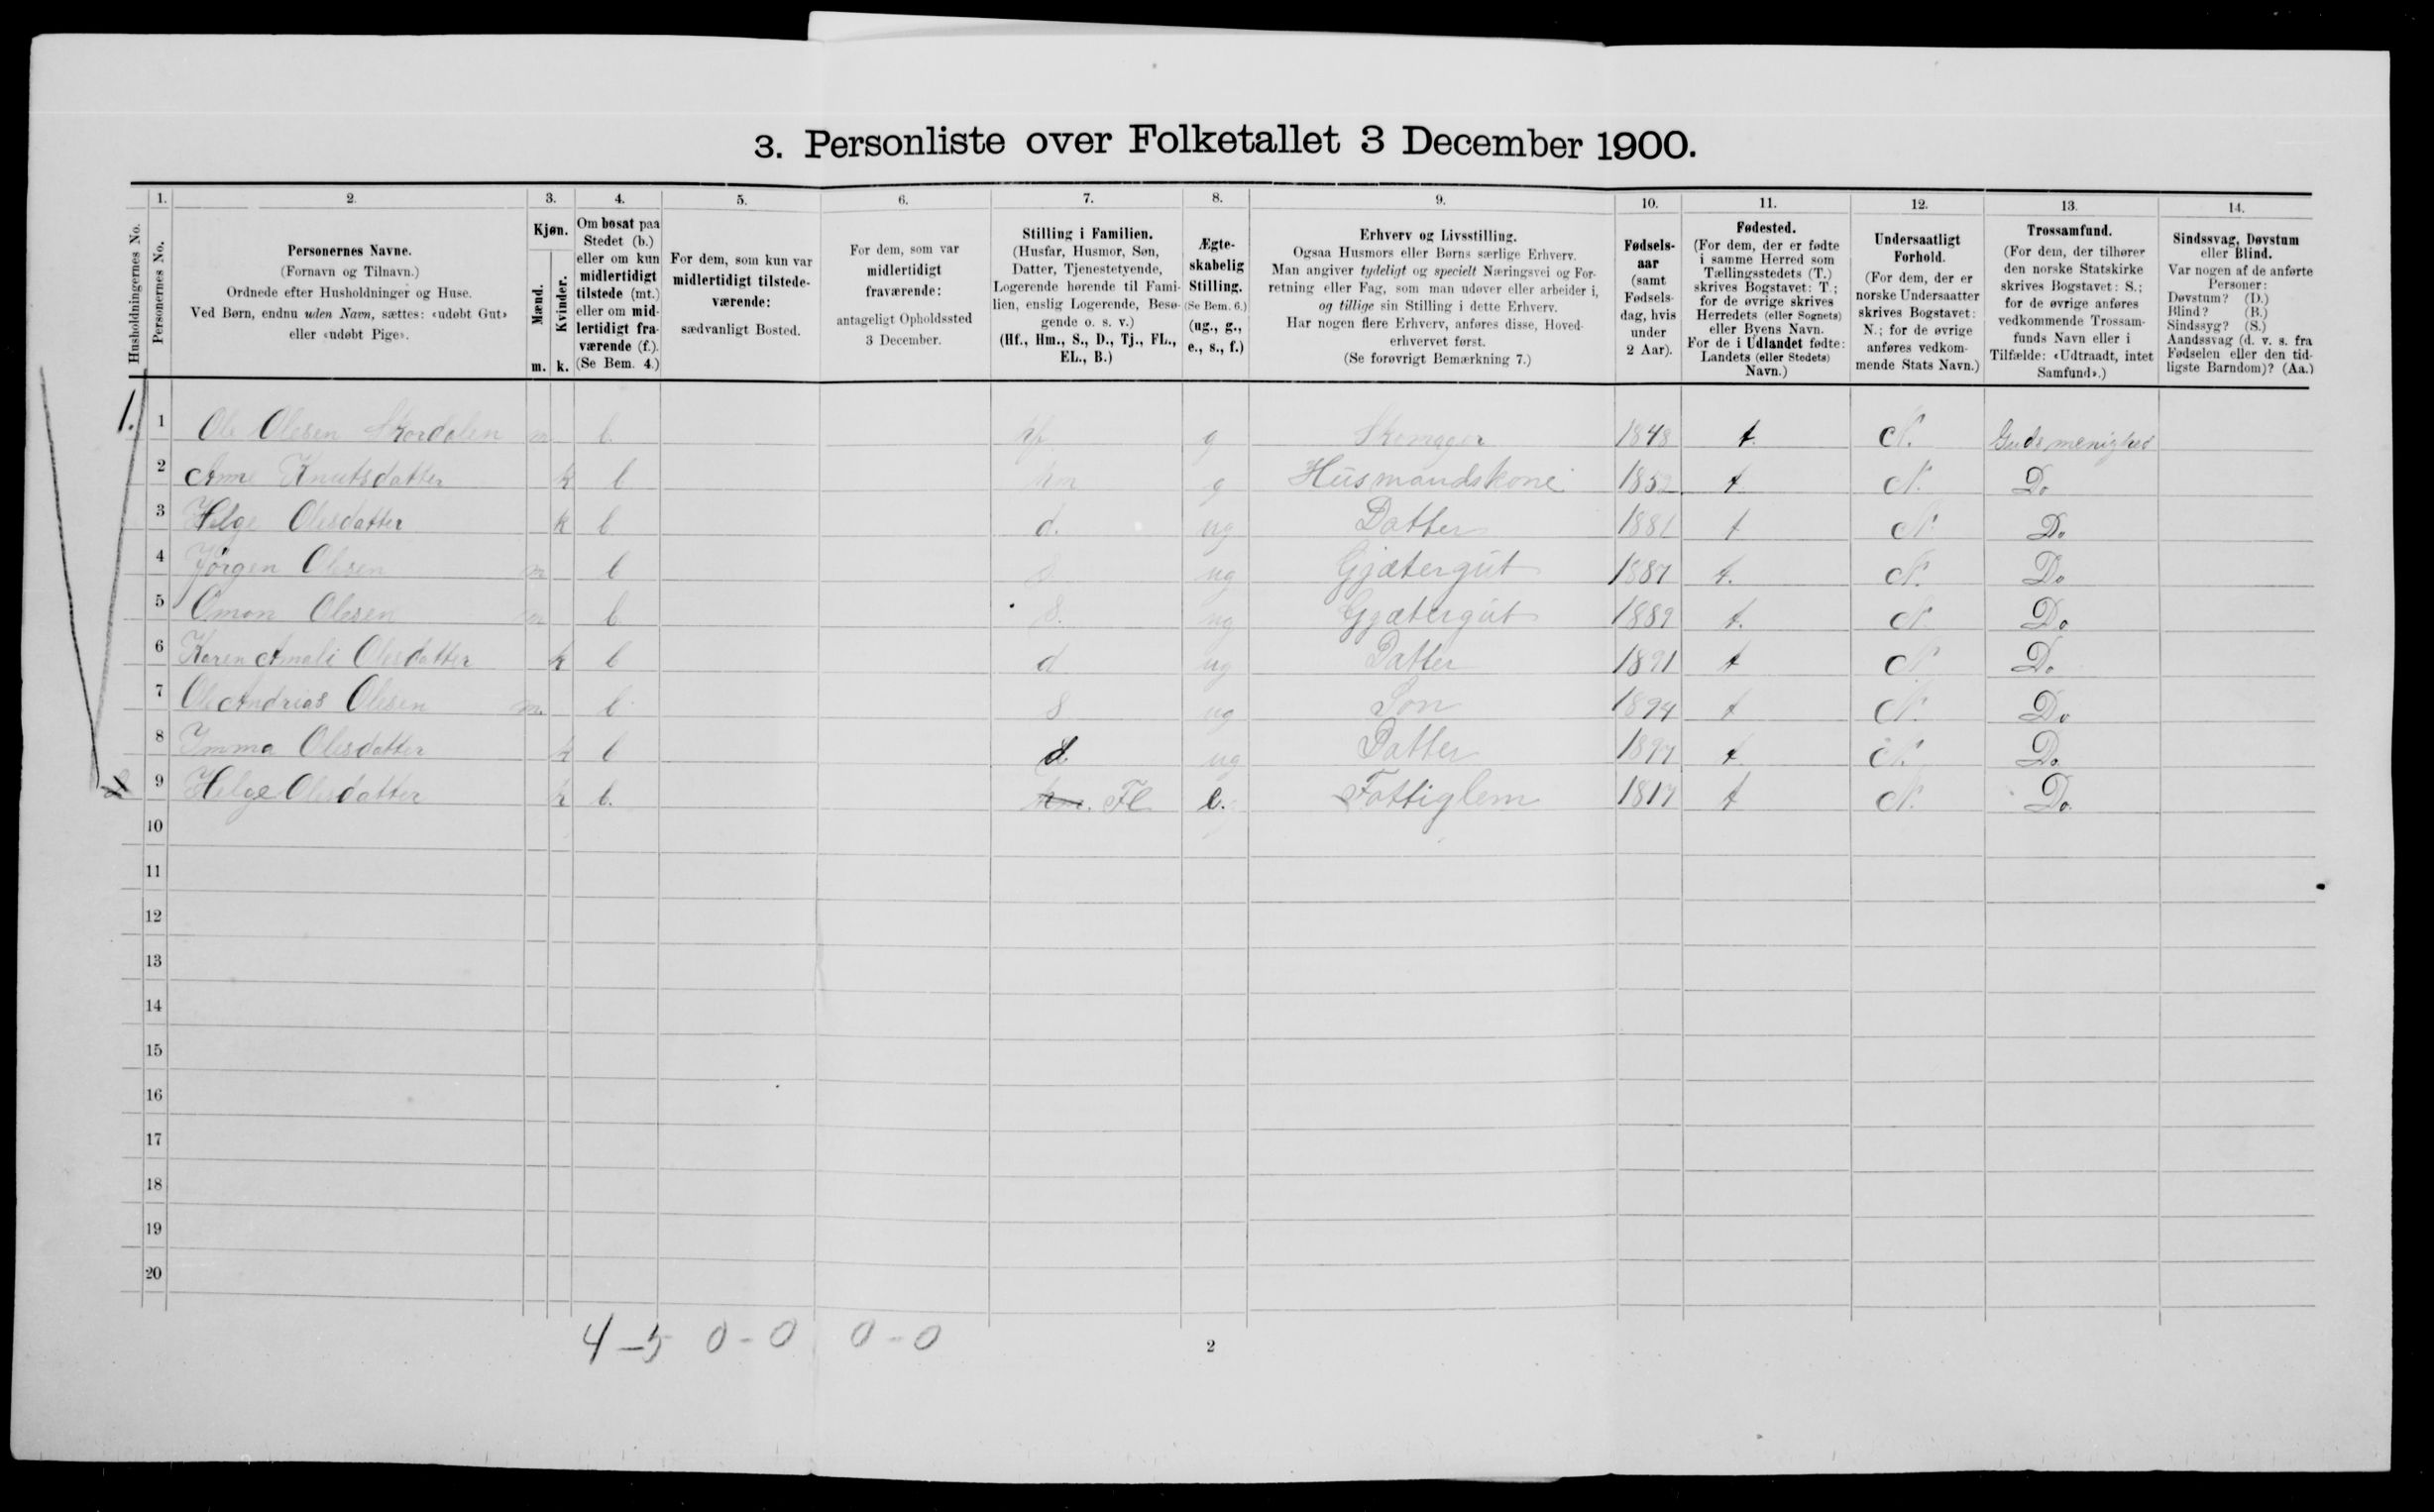 3. Personliste over Folketallet 3 December 1900.
Husholdningernes No.
1.
Personernes No.
2.
Personernes Navne.
(Fornavn og Tilnavn.)
Ordnede efter Husholdninger og Huse.
Ved Børn, endnu uden Navn, sættes: «udøbt Gut»
eller «udøbt Pige».
3.
Kjøn.
Mænd.
Kvinder.
m. k.
4.
Om bosat paa
Stedet (b.)
eller om kun
midlertidigt
tilstede (mt.)
eller om mid-
lertidigt fra-
værende (f.).
(Se Bem. 4.)
5.
For dem, som kun var
midlertidigt tilstede-
værende:
sædvanligt Bosted.
6.
For dem, som var
midlertidigt
fraværende:
antageligt Opholdssted
3 December.
7.
Stilling i Familien.
(Husfar, Husmor, Søn,
Datter, Tjenestetyende,
Logerende hørende til Fami-
lien, enslig Logerende, Besø-
gende o. s. v.)
(Hf., Hm., S., D., Tj., FL.,
EL., B.)
8.
Ægte-
skabelig
Stilling.
(Se Bem. 6.)
(ug., g.,
e., s., f.)
9.
Erhverv og Livsstilling.
Ogsaa Husmors eller Børns særlige Erhverv.
Man angiver tydeligt og specielt Næringsvei og For-
retning eller Fag, som man udøver eller arbeider i,
og tillige sin Stilling i dette Erhverv.
Har nogen flere Erhverv, anføres disse, Hoved-
erhvervet først.
(Se forøvrigt Bemærkning 7.)
10.
Fødsels-
aar
(samt
Fødsels-
dag, hvis
under
2 Aar).
11.
Fødested.
(For dem, der er fødte
i samme Herred som
Tællingsstedets (T.)
skrives Bogstavet: T.;
for de øvrige skrives
Herredets (eller Sognets)
eller Byens Navn.
For de i Udlandet fødte:
Landets (eller Stedets)
Navn.)
12.
Undersaatligt
Forhold.
(For dem, der er
norske Undersaatter
skrives Bogstavet:
N.; for de øvrige
anføres vedkom-
mende Stats Navn.)
13.
Trossamfund.
(For dem, der tilhører
den norske Statskirke
skrives Bogstavet: S.;
for de øvrige anføres
vedkommende Trossam-
funds Navn eller i
Tilfælde: «Udtraadt, intet
Samfund».)
14.
Sindssvag, Døvstum
eller Blind.
Var nogen af de anførte
Personer:
Døvstum? (D.)
Blind? (B.)
Sindssyg? (S.)
Aandssvag (d. v. s. fra
Fødselen eller den tid-
ligste Barndom)? (Aa.)
1. 1 Ole Olesen Skordalen m b. hf. g Skomager 1848 t. N. Guds menighed
2 Anne Knutsdatter k b hm g Husmandskone 1852 t N. Do
3 Helge Olesdatter k b d. ug Datter 1881 t N. Do
4 Jørgen Olesen m b S ug Gjætergut 1887 t. N. Do
5 Omon Olesen m b S. ug Gjætergut 1889 t. N. Do
6 Karen Amali Olesdatter k b d ug Datter 1891 t N. Do
7 Ole Andrias Olesen m. b S ug Søn 1894 t N. Do
8 Imma Olesdatter k b d. ug Datter 1897 t N. Do
9 Helge Olesdatter k b. hm. Fl e. Fattiglem 1817 t N. Do
10
11
12
13
14
15
16
17
18
19
20
4 - 5 0 - 0 0 - 0
2